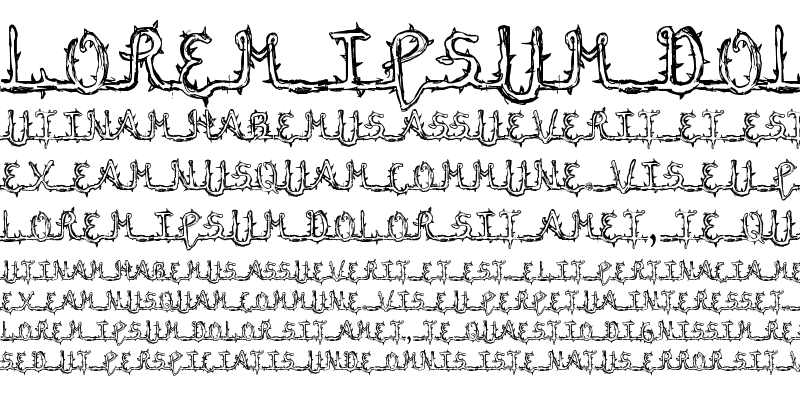 LOREM IPSUM DOL
UTINAM HABEMUS ASSUEVERIT ET EST
EX EAM NUSQUAM COMMUNE. VIS EU P
LOREM IPSUM DOLOR SIT AMET, TE QU
UTINAM HABEMUS ASSUEVERIT ET EST ELIT PERTINACIA ME
EX EAM NUSQUAM COMMUNE. VIS EU PERPETUA INTERESSET.
LOREM IPSUM DOLOR SIT AMET, TE QUAESTIO DIGNISSIM RE
SED UT PERSPICIATIS UNDE OMNIS ISTE NATUS ERROR SIT V